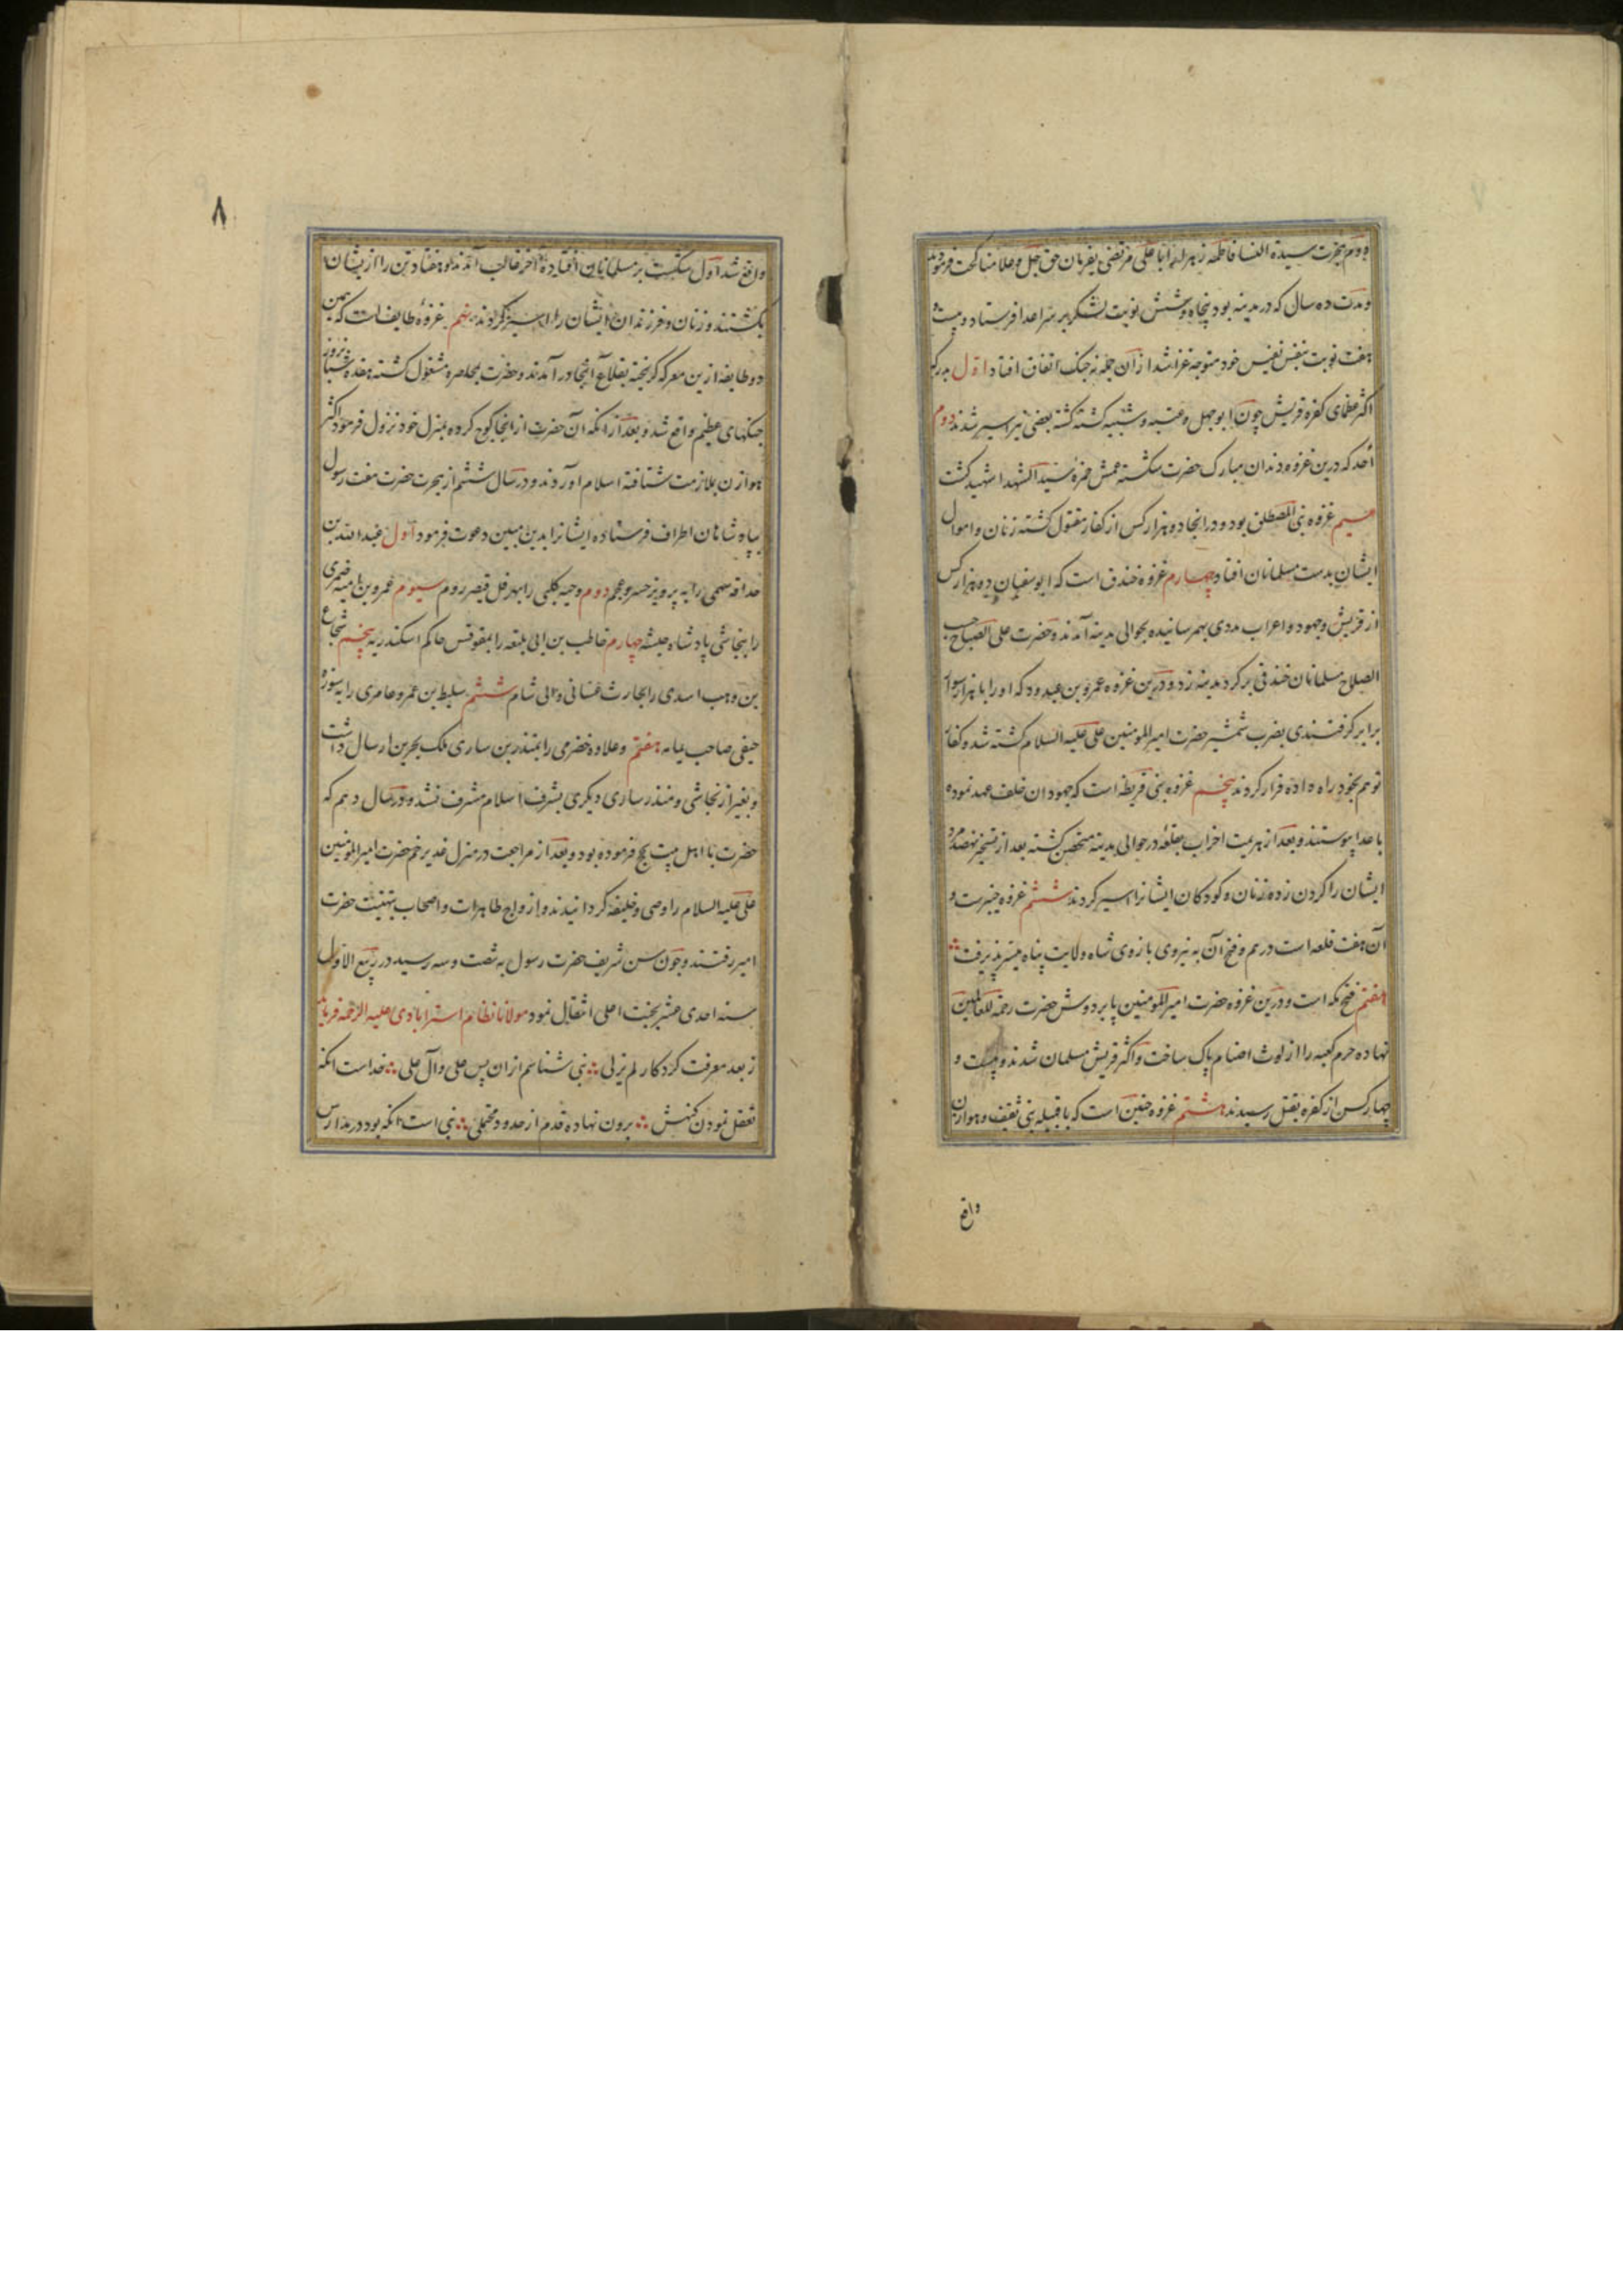 دوم هجرت سیدة النسا فاطمه زهرا را با علی مرتضی بفرمان حق جل و علا مناکحت فرمودند
و مدت ده سال که در مدینه بود پنجاه و شش نوبت لشکر بر سر اعدا فرستاد و بیست و
هفت نوبت بنفس نفیس خود متوجه غزا شد از آن جمله نه جنک اتفاق افتاد اول بدر که
اکثر عظمای کفره قریش چون ابوجهل و عتبه و شیبه کشته کشته بعضی نیز اسیر شدند دوم
أحد که درین غزوه دندان مبارک حضرت شکسته عمش حمزه سید الشهدا شهید کشت
سیم غزوه بنی المصطلق بود و در انجا ده هزار کس از کفار مقتول کشته زنان و اموال
ایشان بدست مسلمانان افتاد چهارم غزوه خندق است که ابوسفیان ده هزار کس
از قریش و جهود و اعراب مددی بهم رسانیده بحوالی مدینه آمدند و حضرت علی الصباح حسب
الصلاح مسلمانان خندقی بر کرد مدینه زد و درین غزوه عمرو بن عبدود که او را با هزار سوار
برابر کرفتندی بضرب شمشیر حضرت امیر المومنین علی علیه السلام کشته شد و کفار
توهم بخود راه داده فرار کردند پنجم غزوه بنی قریظه است که جهودان خلف عهد نموده
با اعدا پیوستند و بعد از هزیمت احزاب بقلعه در حوالی مدینه متحصن کشته بعد از تسخیر نهصد مرد
ایشان را کردن زده زنان و کودکان ایشانرا اسیر کردند ششم غزوه خیبرست و
آن هفت قلعه است در هم و فتح آن به نیروی بازوی شاه ولایت پناه میسر پذیرفت
هفتم فتح مکه است و درین غزوه حضرت امیر المومنین پا بر دوش حضرت رحمة للعالمین
نهاده حرم کعبه را از لوث اصنام پاک ساخت و اکثر قریش مسلمان شدند و بیست و
چهار کس از کفره بقتل رسیدند هشتم غزوه حنین است که با قبیله بنی ثقیف و هوازن
واقع
٨
واقع شد اول شکست بر مسلمانان افتاده آخر غالب آمدند و هفتاد تن را از یشان
بکشتند و زنان و فرزندان ایشان را اسیر کردند نهم غزوه طایف است که همین
دو طایفه ازین معرکه کریخته بقلاع آنجا در آمدند و حضرت بمحاصره مشغول کشته هفده شبانروز
جنکهای عظیم واقع شد و بعد از انکه آن حضرت از انجا کوچ کرده بمنزل خود نزول فرمود اکثر
هوازن بملازمت شتافته اسلام آوردند و در سال ششم از هجرت حضرت هفت رسول
بپادشاهان اطراف فرستاده ایشانرا بدین مبین دعوت فرمود اول عبدالله بن
حذافه سهمی را به پرویز خسرو عجم دوم دحیه کلبی را بهرقل قیصر روم سیوم عمرو بن امیه ضمری
را بنجاشی پادشاه حبشه چهارم حاطب بن ابی بلتعه را بمقوقس حاکم اسکندریه پنجم شجاع
بن وهب اسدی را بحارث غسانی والی شام ششم سلیط بن عمرو عامری را به هوزه
حنفی صاحب یمامه هفتم و علاوه خضرمی را بمنذر بن ساری ملک بحرین ارسال داشت
و بغیر از نجاشی و منذر ساری دیکری بشرف اسلام مشرف نشد و در سال دهم که
حضرت با اهل بیت حج فرموده بود و بعد از مراجعت در منزل غدیر خم حضرت امیر المومنین
علی علیه السلام را وصی و خلیفه کردانیدند و ازواج طاهرات و اصحاب بتهنیت حضرت
امیر رفتند و چون سن شریف حضرت رسول به شصت و سه رسید در ربیع الاول
سنه احدی عشر بجنت اعلی انتقال نمود مولانا نظام استرابادی علیه الرحمه فرماید
ز بعد معرفت کردکار لم یزلی ∴ نبی شناسم ازان پس علی و آل علی ∴ خداست انکه
تعقل نمودن کنهش ∴ برون نهاده قدم از حدود محتملی ∴ نبی است انکه بود در مدارس